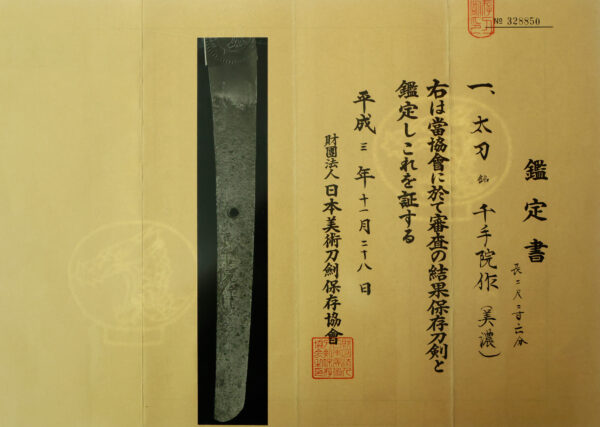 № 328850
鑑定書
一、太刀 銘 千手院作（美濃）
長二尺二寸六分
右は當協會に於て審査の結果保存刀剣と
鑑定しこれを証する
平成三年十一月二十八日
財團法人 日本美術刀劍保存協會